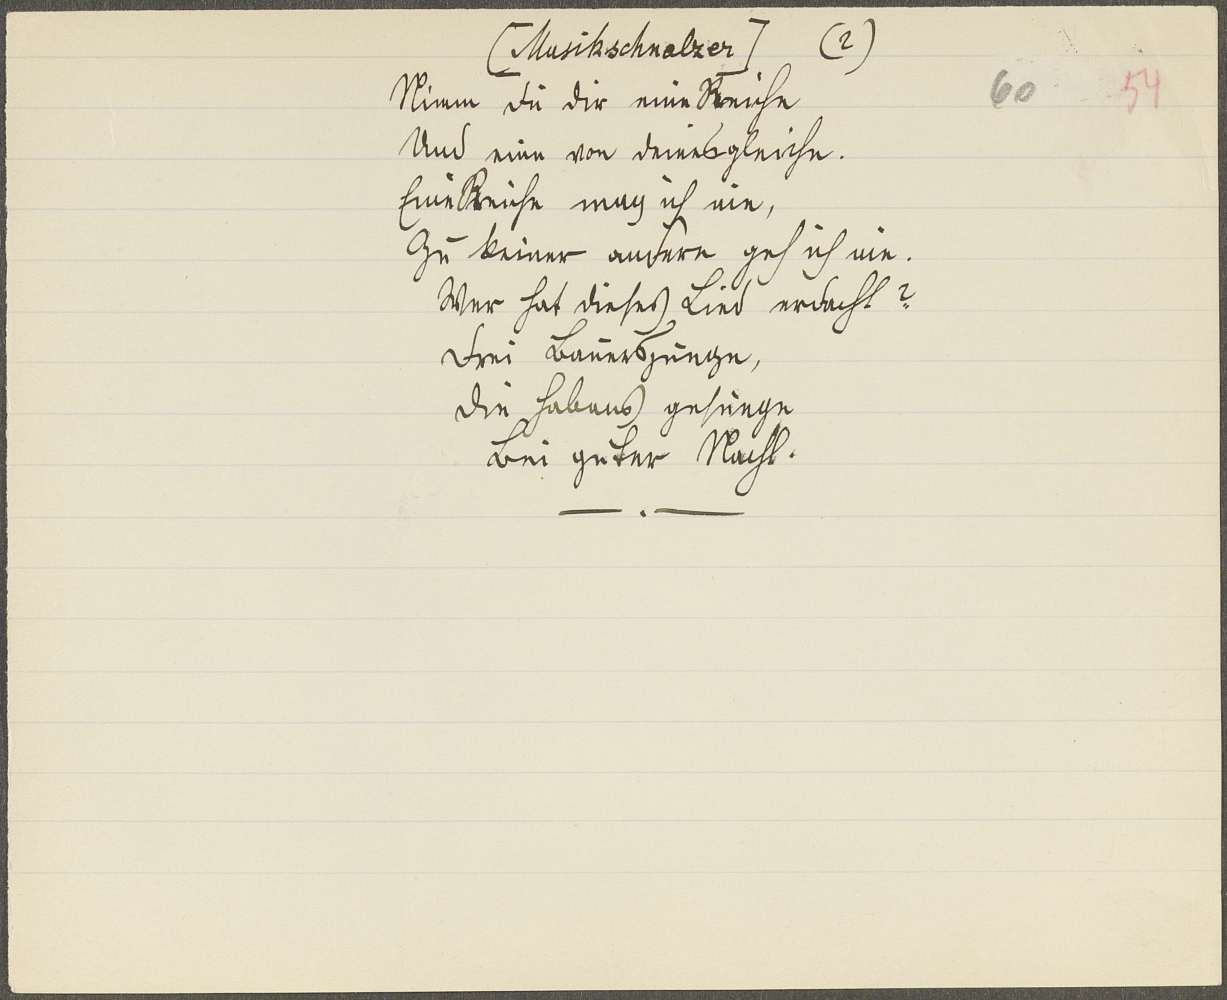 [Musikschnalzer] (2)
60 54
Nimm du dir eine Reiche
Und eine von deinesgleiche.
Eine Reiche mag ich nie,
Zu keiner andere geh ich nie.
Wer hat dieses Lied erdacht?
Drei Bauersjunge,
Die habens gesunge
Bei guter Nacht.